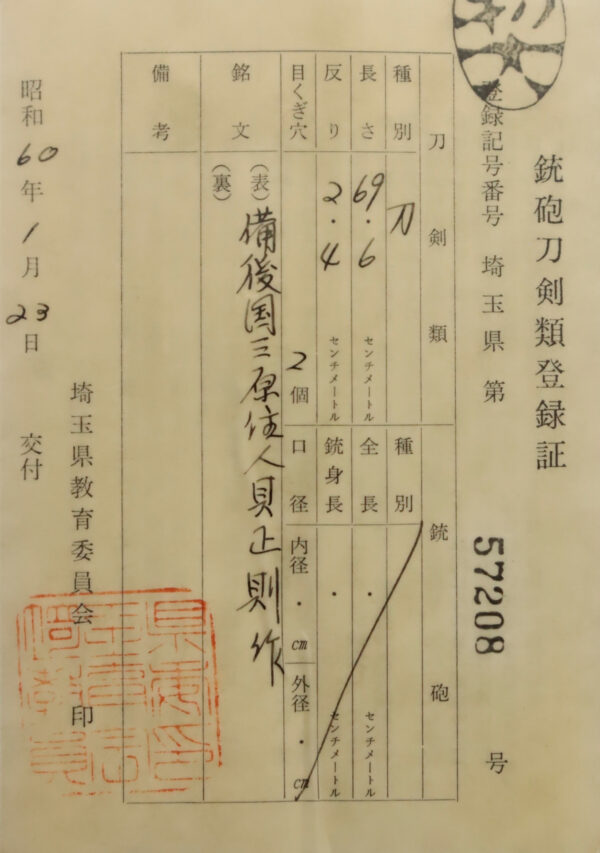 銃砲刀剣類登録証
登録記号番号 埼玉県 第 57208 号
刀剣類
種別 刀
長さ 69.6 センチメートル
反り 2.4 センチメートル
目くぎ穴 2個
銃砲
種別
全長 ・ センチメートル
銃身長 ・ センチメートル
口径 内径 ・ cm 外径 ・ cm
銘文 (表) 備後国三原住人貝正則作
(裏)
備考
昭和60年1月23日 交付
埼玉県教育委員会 印